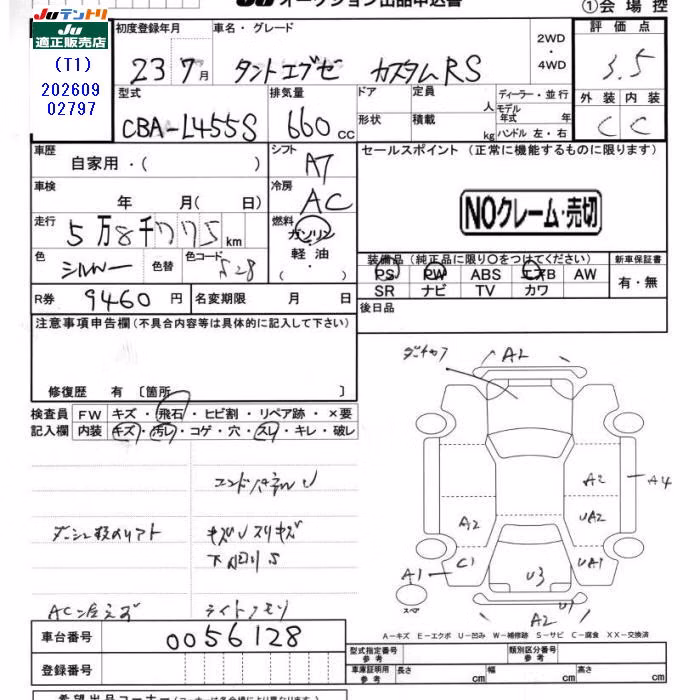 JUテントリ
JUオークション出品申込書
①会場控
JU
適正販売店
(T1)
202609
02797
初度登録年月
車名・グレード
評価点
23 7月
タントエグゼ カスタムRS
2WD
・
4WD
3.5
型式
排気量
ドア
定員
人
ディーラー・並行
外装 内装
CBA-L455S
660 cc
形状
積載
kg
モデル年式 年
ハンドル 左・右
C C
車歴
自家用・( )
シフト
A7
セールスポイント (正常に機能するものに限ります)
車検
年 月( 日)
冷房
AC
NOクレーム・売切
走行
5万8千775km
燃料
ガソリン
軽油
・( )
色
シルバー
色替
色コード
S28
装備品(純正品に限り○をつけてください)
新車保証書
PS PW ABS エアB AW
SR ナビ TV カワ
有・無
R券
9460円
名変期限
月 日
後日品
注意事項申告欄(不具合内容等は具体的に記入して下さい)
修復歴 有 〔箇所 〕
検査員
記入欄
FW キズ・飛石・ヒビ割・リペア跡・×要
内装 キズ・汚レ・コゲ・穴・スレ・キレ・破レ
エンドパネルU
キズUスリキズ
下回りS
ライトクモリ
A2
A2
A4
UA2
A2
C1
UA1
A1
U3
U1
A2
スペア
A-キズ E-エクボ U-凹み W-補修跡 S-サビ C-腐食 XX-交換済
車台番号
0056128
登録番号
型式指定番号
参考
類別区分番号
参考
車庫証明用
参考
長さ cm
幅 cm
高さ cm
希望出品コーナー